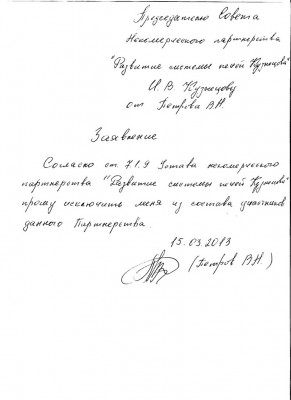 Председателю Совета
Некомерческого партнерства
"Развитие системы печей Кузнецова"
И.В Кузнецову
от Петрова В.Н.
Заявление
Согласно ст 7.1.9 Устава некомерческого
партнерства "Развитие системы печей Кузнецова"
прошу исключить меня из состава участников
данного Партнерства.
15.03.2013
(Петров В.Н.)